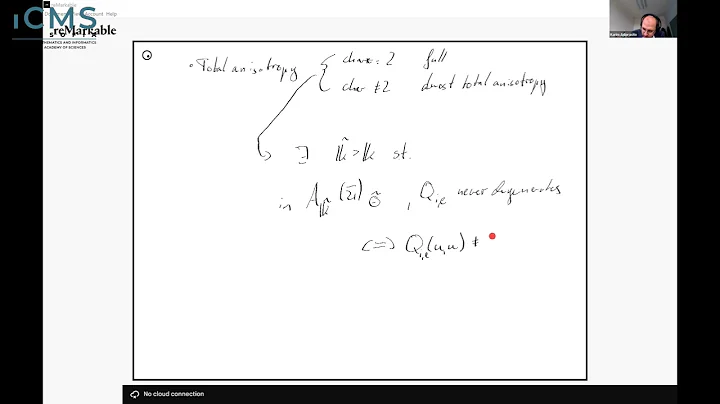 iCMS
reMarkable
Account Help
MATHEMATICS AND INFORMATICS
ACADEMY OF SCIENCES
• Total anisotropy { char = 2 full
char ≠ 2 almost total anisotropy
∃ k̃ > k st.
in A_k̃(Σ)_θ̃ , Q_{i,e} never degenerates
⟺ Q_{i,e}(u,u) ≠
No cloud connection